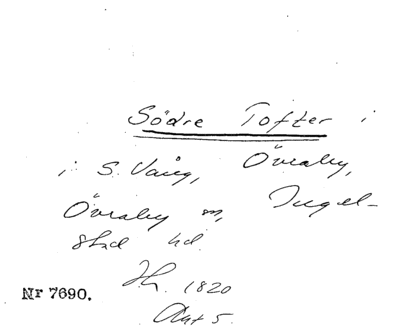 Södre Tofter i
i S. Vång, Övraby,
Övraby sn, Ingel-
stad hd.
Jh. 1820
Akt 5.
Nr 7690.